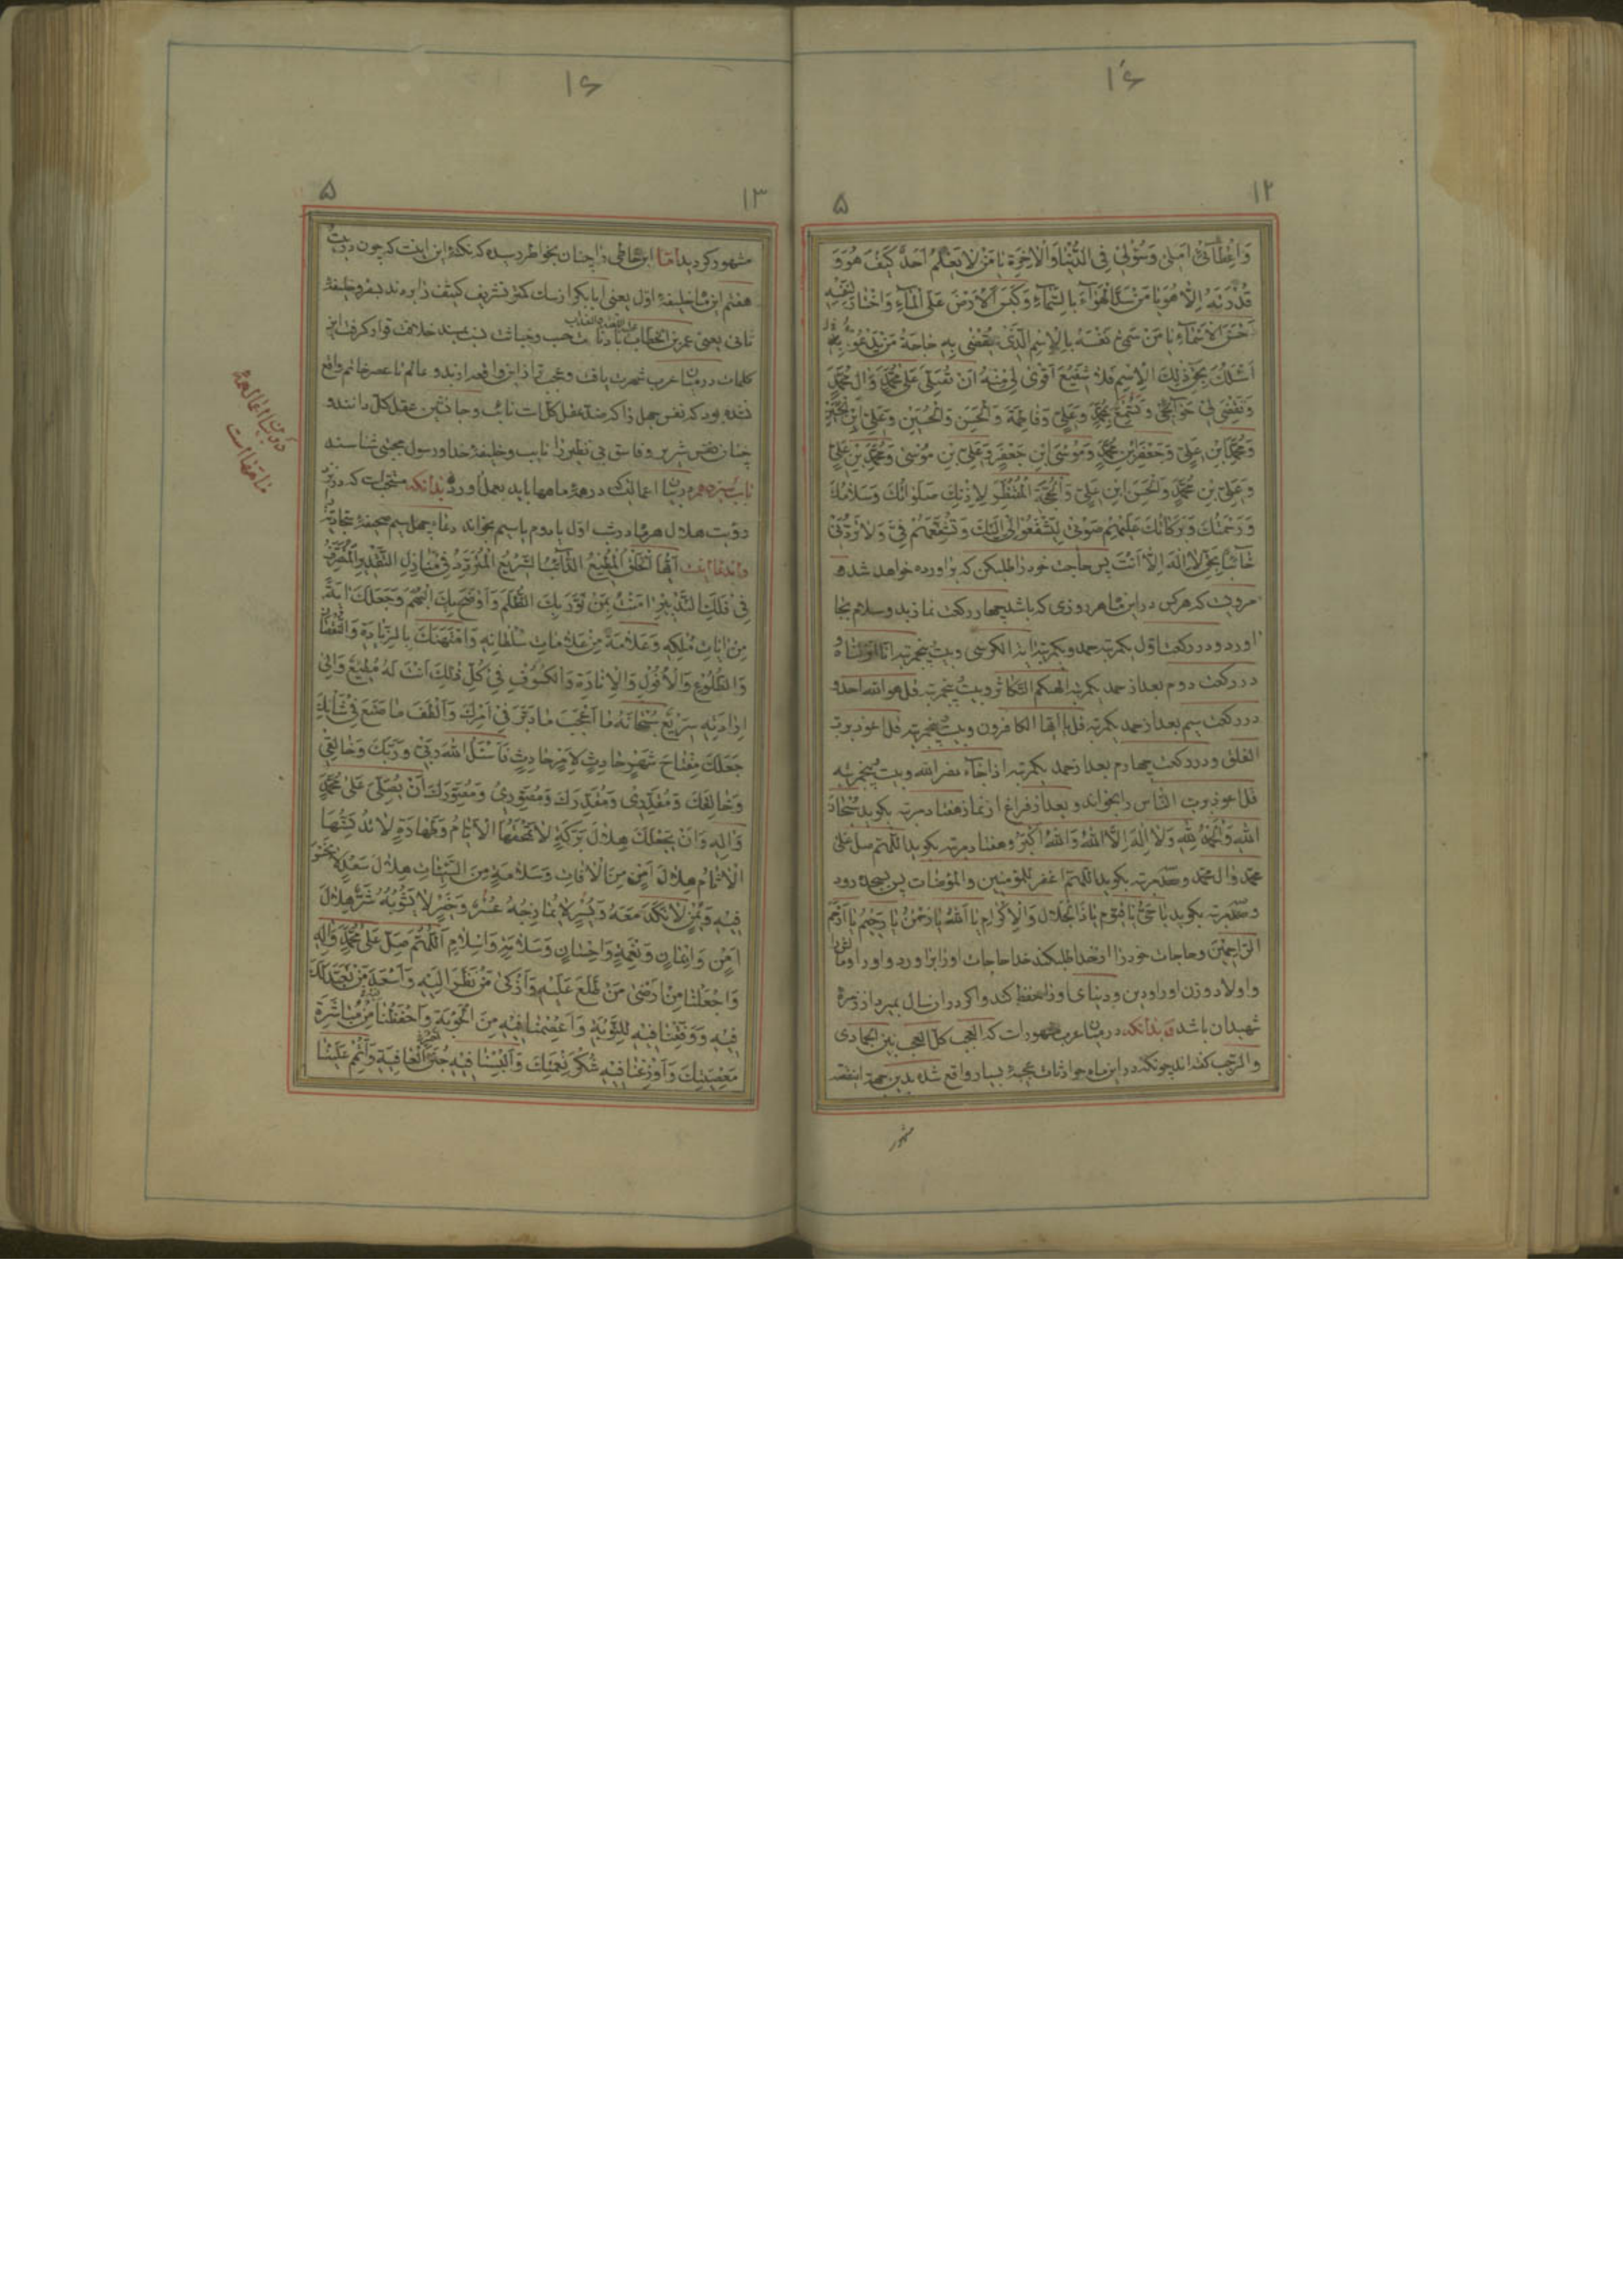 ۱۶
۱۲
۵
وَاِعْطٰآئِي اَمَلِي وَسُؤْلِي فِي الدُّنْيٰا وَالْاٰخِرَةِ يٰا مَنْ لٰا يَعْلَمُ اَحَدٌ كَيْفَ هُوَ وَ
قُدْرَتَهُ اِلّٰا هُوَ يٰا مَنْ سَدَّ الْهَوٰآءَ بِالسَّمٰآءِ وَكَبَسَ الْاَرْضَ عَلَى الْمٰآءِ وَاخْتٰارَ لِنَفْسِهِ
اَحْسَنَ الْاَسْمٰآءِ يٰا مَنْ سَمّٰى نَفْسَهُ بِالْاِسْمِ الَّذِي يُقْضٰى بِهِ حٰاجَةُ مَنْ يَدْعُوهُ بِهِ
اَسْئَلُكَ بِحَقِّ ذٰلِكَ الْاِسْمِ فَلٰا شَفِيعَ اَقْوٰى لِي مِنْهُ اَنْ تُصَلِّيَ عَلٰى مُحَمَّدٍ وَاٰلِ مُحَمَّدٍ
وَتَقْضِيَ لِي حَوٰآئِجِي وَتُسْمِعَ مُحَمَّدٍ وَعَلِيٍّ وَفٰاطِمَةَ وَالْحَسَنَ وَالْحُسَيْنَ وَعَلِيَّ ابْنَ الْحُسَيْنِ
وَمُحَمَّدَ ابْنَ عَلِيٍّ وَجَعْفَرَ بْنَ مُحَمَّدٍ وَمُوسَى ابْنَ جَعْفَرٍ وَعَلِيَّ بْنَ مُوسٰى وَمُحَمَّدَ بْنَ عَلِيٍّ
وَعَلِيَّ بْنَ مُحَمَّدٍ وَالْحَسَنَ ابْنَ عَلِيٍّ وَالْحُجَّةَ الْمُنْتَظَرَ لِاِذْنِكَ صَلَوٰاتُكَ وَسَلٰامُكَ
وَرَحْمَتُكَ وَبَرَكٰاتُكَ عَلَيْهِمْ صَوْتِي لِيَشْفَعُوا لِي اِلَيْكَ وَتُشَفِّعَهُمْ فِيَّ وَلٰا تَرُدَّنِي
خٰآئِبًا بِحَقِّ لٰا اِلٰهَ اِلّٰا اَنْتَ پس حاجت خود را طلب کن که براورده خواهد شد ه
مرویست که هر کس در این ماه روزی که باشد چهار رکعت نماز بدو سلام بجا
اورد و در رکعت اوّل یکمرتبه حمد و یکمرتبه ایة الکرسی و بیست پنجمرتبه انا انزلناه و
در رکعت دوم بعد از حمد یکمرتبه الهیکم التکاثر و بیست پنجمرتبه قل هو الله احد و
در رکعت سیم بعد از حمد یکمرتبه قل یا ایها الکافرون و بیست پنجمرتبه قل اعوذ برب
الفلق و در رکعت چهارم بعد از حمد یکمرتبه اذا جاء نصر الله و بیست پنجمرتبه
قل اعوذ برب الناس را بخواند و بعد از فراغ از نماز هفتاد مرتبه بکوید سُبْحٰانَ
اللهِ وَالْحَمْدُ لِلّٰهِ وَلٰا اِلٰهَ اِلَّا اللهُ وَاللهُ اَكْبَرُ و هفتاد مرتبه بکوید اللّٰهم صل علی
محمد و ال محمد و صد مرتبه بکوید اللّٰهم اغفر للمؤمنین و المؤمنات پس بسجده رود
و صد مرتبه بکوید یٰا حَيُّ یٰا قَيُّومُ یٰا ذَا الْجَلٰالِ وَالْاِكْرٰامِ یٰا اَللهُ یٰا رَحْمٰنُ یٰا رَحِيمُ یٰا اَرْحَمَ
الرّٰاحِمِينَ و حاجات خود را از خدا طلب کند خدا حاجات او را براورد و او را و مالش
و اولاد و زن او را و دین و دنیای او را حفظ کند و اکر در ان سال بمیرد از زمره
شهیدان باشد و بدانکه در میان عرب مشهور است که العجب کل العجب بین الجمادی
و الرجب کفته اند چونکه در این ماه حوادثات عجیبه بسیار واقع شده بدین جهة اینفقره
مشهور
۱۶
۱۳
۵
مشهور کردید اما این خاطی را چنان بخاطر رسیده که نکتهٔ این اینست که چون در بیست
هفتم این ماه خلیفهٔ اول یعنی ابابکر از میان کمتر تشریف کثیف را بردند بسفر و خلیفهٔ
ثانی یعنی عمر بن الخطاب با دنائت حسب و خباثت نسب بمسند خلافت قرار کرفت این
کلمات در میان عرب شهرت یافت و عجب تر از این واقعه از بدو عالم تا عصر خاتم واقع
نشده بود که نفس جهل را که ضد عقل کل است نائب و جانشین عقل کل دانند و
چنان نفس شریر و فاسق بی نظیر را نایب و خلیفهٔ خدا و رسول مجتبی شناسند
باب سیزدهم در بیان اعمالیکه در همهٔ ماهها باید بعمل اورد بدانکه مستحب است که در نزد
رؤیت هلال هر ماه در شب اول یا دوم یا سیم بخواند دعاء چهل سیم صحیفهٔ سجادیه را
و اندعا اینست اَيُّهَا الْخَلْقُ الْمُطِيعُ الدّٰآئِبُ السَّرِيعُ الْمُتَرَدِّدُ فِي مَنٰازِلِ التَّقْدِيرِ الْمُتَصَرِّفُ
فِي فَلَكِ التَّدْبِيرِ اٰمَنْتُ بِمَنْ نَوَّرَ بِكَ الظُّلَمَ وَاَوْضَحَ بِكَ الْبُهَمَ وَجَعَلَكَ اٰيَةً
مِنْ اٰيٰاتِ مُلْكِهِ وَعَلٰامَةً مِنْ عَلٰامٰاتِ سُلْطٰانِهِ وَامْتَهَنَكَ بِالزِّيٰادَةِ وَالنُّقْصٰانِ
وَالطُّلُوعِ وَالْاُفُولِ وَالْاِنٰارَةِ وَالْكُسُوفِ فِي كُلِّ ذٰلِكَ اَنْتَ لَهُ مُطِيعٌ وَاِلٰى
اِرٰادَتِهِ سَرِيعٌ سُبْحٰانَهُ مٰا اَعْجَبَ مٰا دَبَّرَ فِي اَمْرِكَ وَاَلْطَفَ مٰا صَنَعَ فِي شَأْنِكَ
جَعَلَكَ مِفْتٰاحَ شَهْرٍ حٰادِثٍ لِاَمْرٍ حٰادِثٍ فَاَسْئَلُ اللهَ رَبِّي وَرَبَّكَ وَخٰالِقِي
وَخٰالِقَكَ وَمُقَدِّرِي وَمُقَدِّرَكَ وَمُصَوِّرِي وَمُصَوِّرَكَ اَنْ يُصَلِّيَ عَلٰى مُحَمَّدٍ
وَاٰلِهِ وَاَنْ يَجْعَلَكَ هِلٰالَ بَرَكَةٍ لٰا تَمْحَقُهَا الْاَيّٰامُ وَطَهٰارَةٍ لٰا تُدَنِّسُهَا
الْاٰثٰامُ هِلٰالَ اَمْنٍ مِنَ الْاٰفٰاتِ وَسَلٰامَةٍ مِنَ السَّيِّئٰاتِ هِلٰالَ سَعْدٍ لٰا نَحْسَ
فِيهِ وَيُمْنٍ لٰا نَكَدَ مَعَهُ وَيُسْرٍ لٰا يُمٰازِجُهُ عُسْرٌ وَخَيْرٍ لٰا يَشُوبُهُ شَرٌّ هِلٰالَ
اَمْنٍ وَاِيمٰانٍ وَنِعْمَةٍ وَاِحْسٰانٍ وَسَلٰامَةٍ وَاِسْلٰامٍ اَللّٰهُمَّ صَلِّ عَلٰى مُحَمَّدٍ وَاٰلِهِ
وَاجْعَلْنٰا مِنْ اَرْضٰى مَنْ طَلَعَ عَلَيْهِ وَاَزْكٰى مَنْ نَظَرَ اِلَيْهِ وَاَسْعَدَ مَنْ تَعَبَّدَ لَكَ
فِيهِ وَوَفِّقْنٰا فِيهِ لِلتَّوْبَةِ وَاعْصِمْنٰا فِيهِ مِنَ الْحَوْبَةِ وَاحْفَظْنٰا مِنْ مُبٰاشَرَةِ
مَعْصِيَتِكَ وَاَوْزِعْنٰا فِيهِ شُكْرَ نِعْمَتِكَ وَاَلْبِسْنٰا فِيهِ جُنَنَ الْعٰافِيَةِ وَاَتْمِمْ عَلَيْنٰا
در بیان اعمال همهٔ
ماهها است